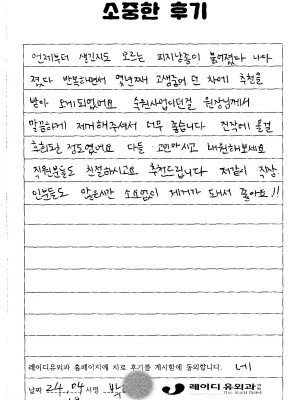 소중한 후기
언제부터 생긴지도 모르는 피지낭종이 붙어졌다 나아
졌다 반복하면서 몇년째 고생중이던 차에 추천을
받아 오게되었어요 수원사업이던걸 원장님께서
말끔하게 제거해주셔서 너무 좋습니다 진작에 올걸
후회되는 정도였어요 다들 고민마시고 내원해보세요
직원분들도 친절하시고요 추천드립니다 저같이 직장
인분들도 많은시간 소요없이 제거가 돼서 좋아요!!
레이디유외과 홈페이지에 치료 후기를 게시함에 동의합니다. 네
날짜 24.04 서명
레이디유외과의원